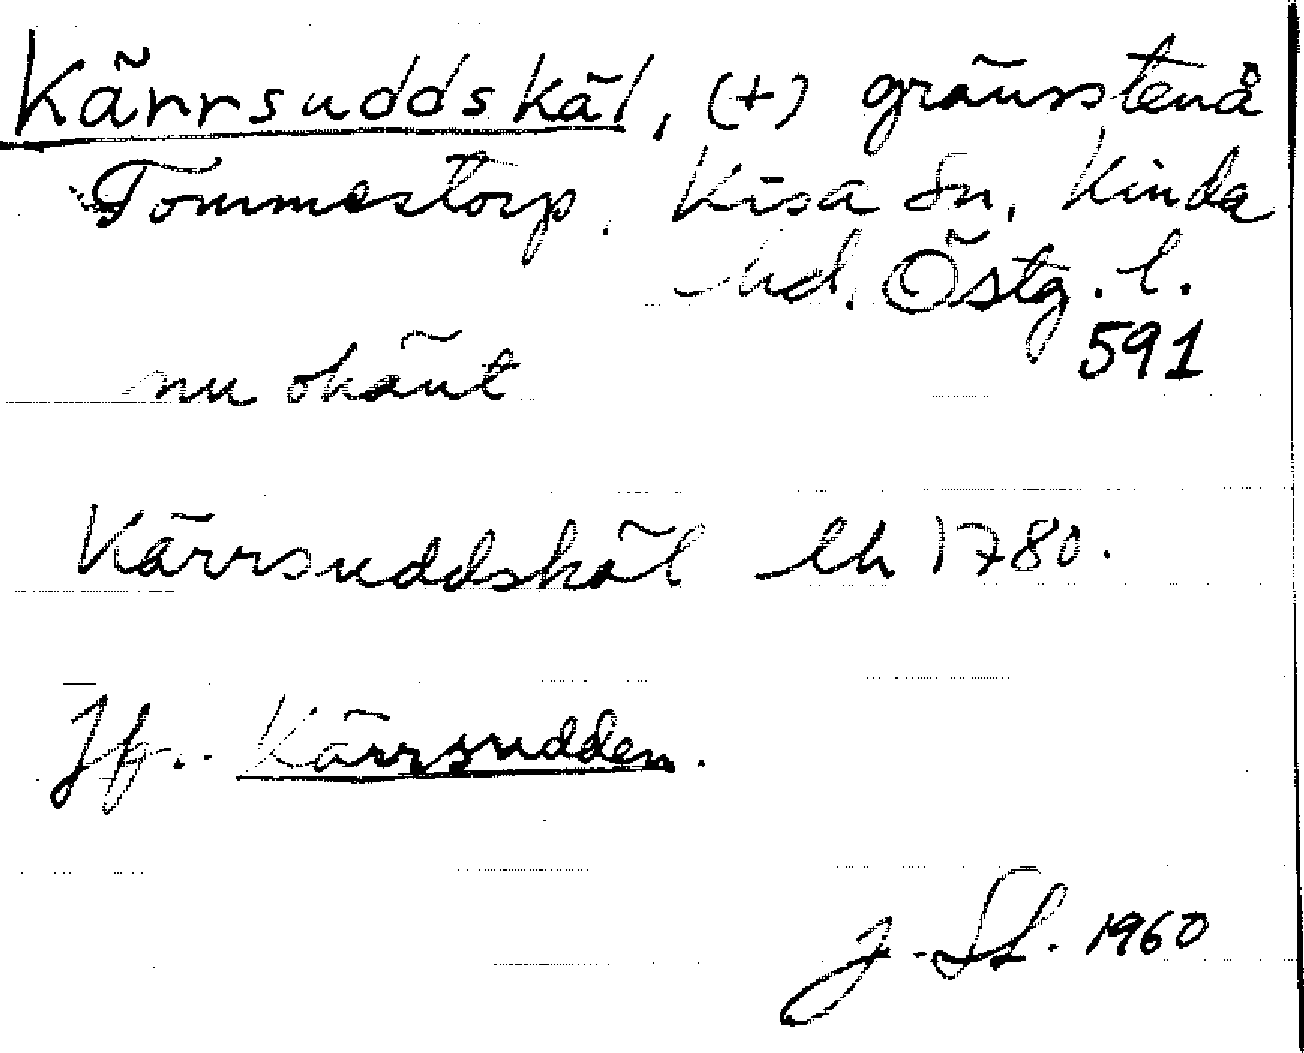 Kärrsuddskäl, (+) gränssten å
Tommestorp. Kisa sn, Kinda
hd. Östg. l.
591
nu okänt
Kärrsuddskäl lh 1780.
Jfr. Kärrsudden.
J. St. 1960